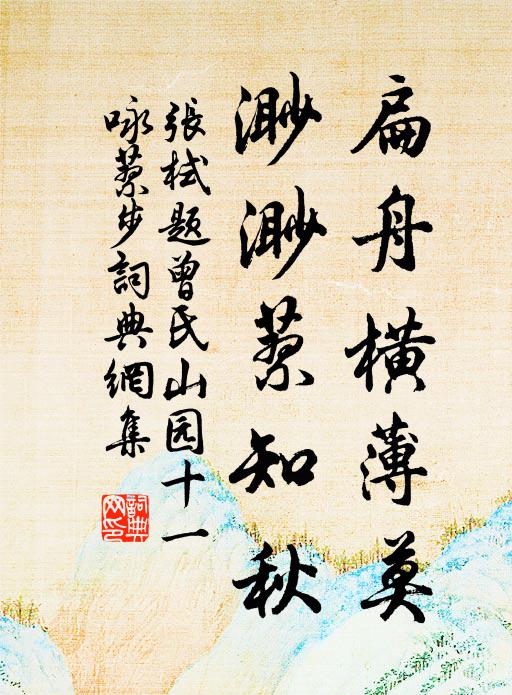 扁舟橫薄莫
渺渺蔡知秋
張栻題曾氏山园十一
咏蔡步詞典網集
詞典網印